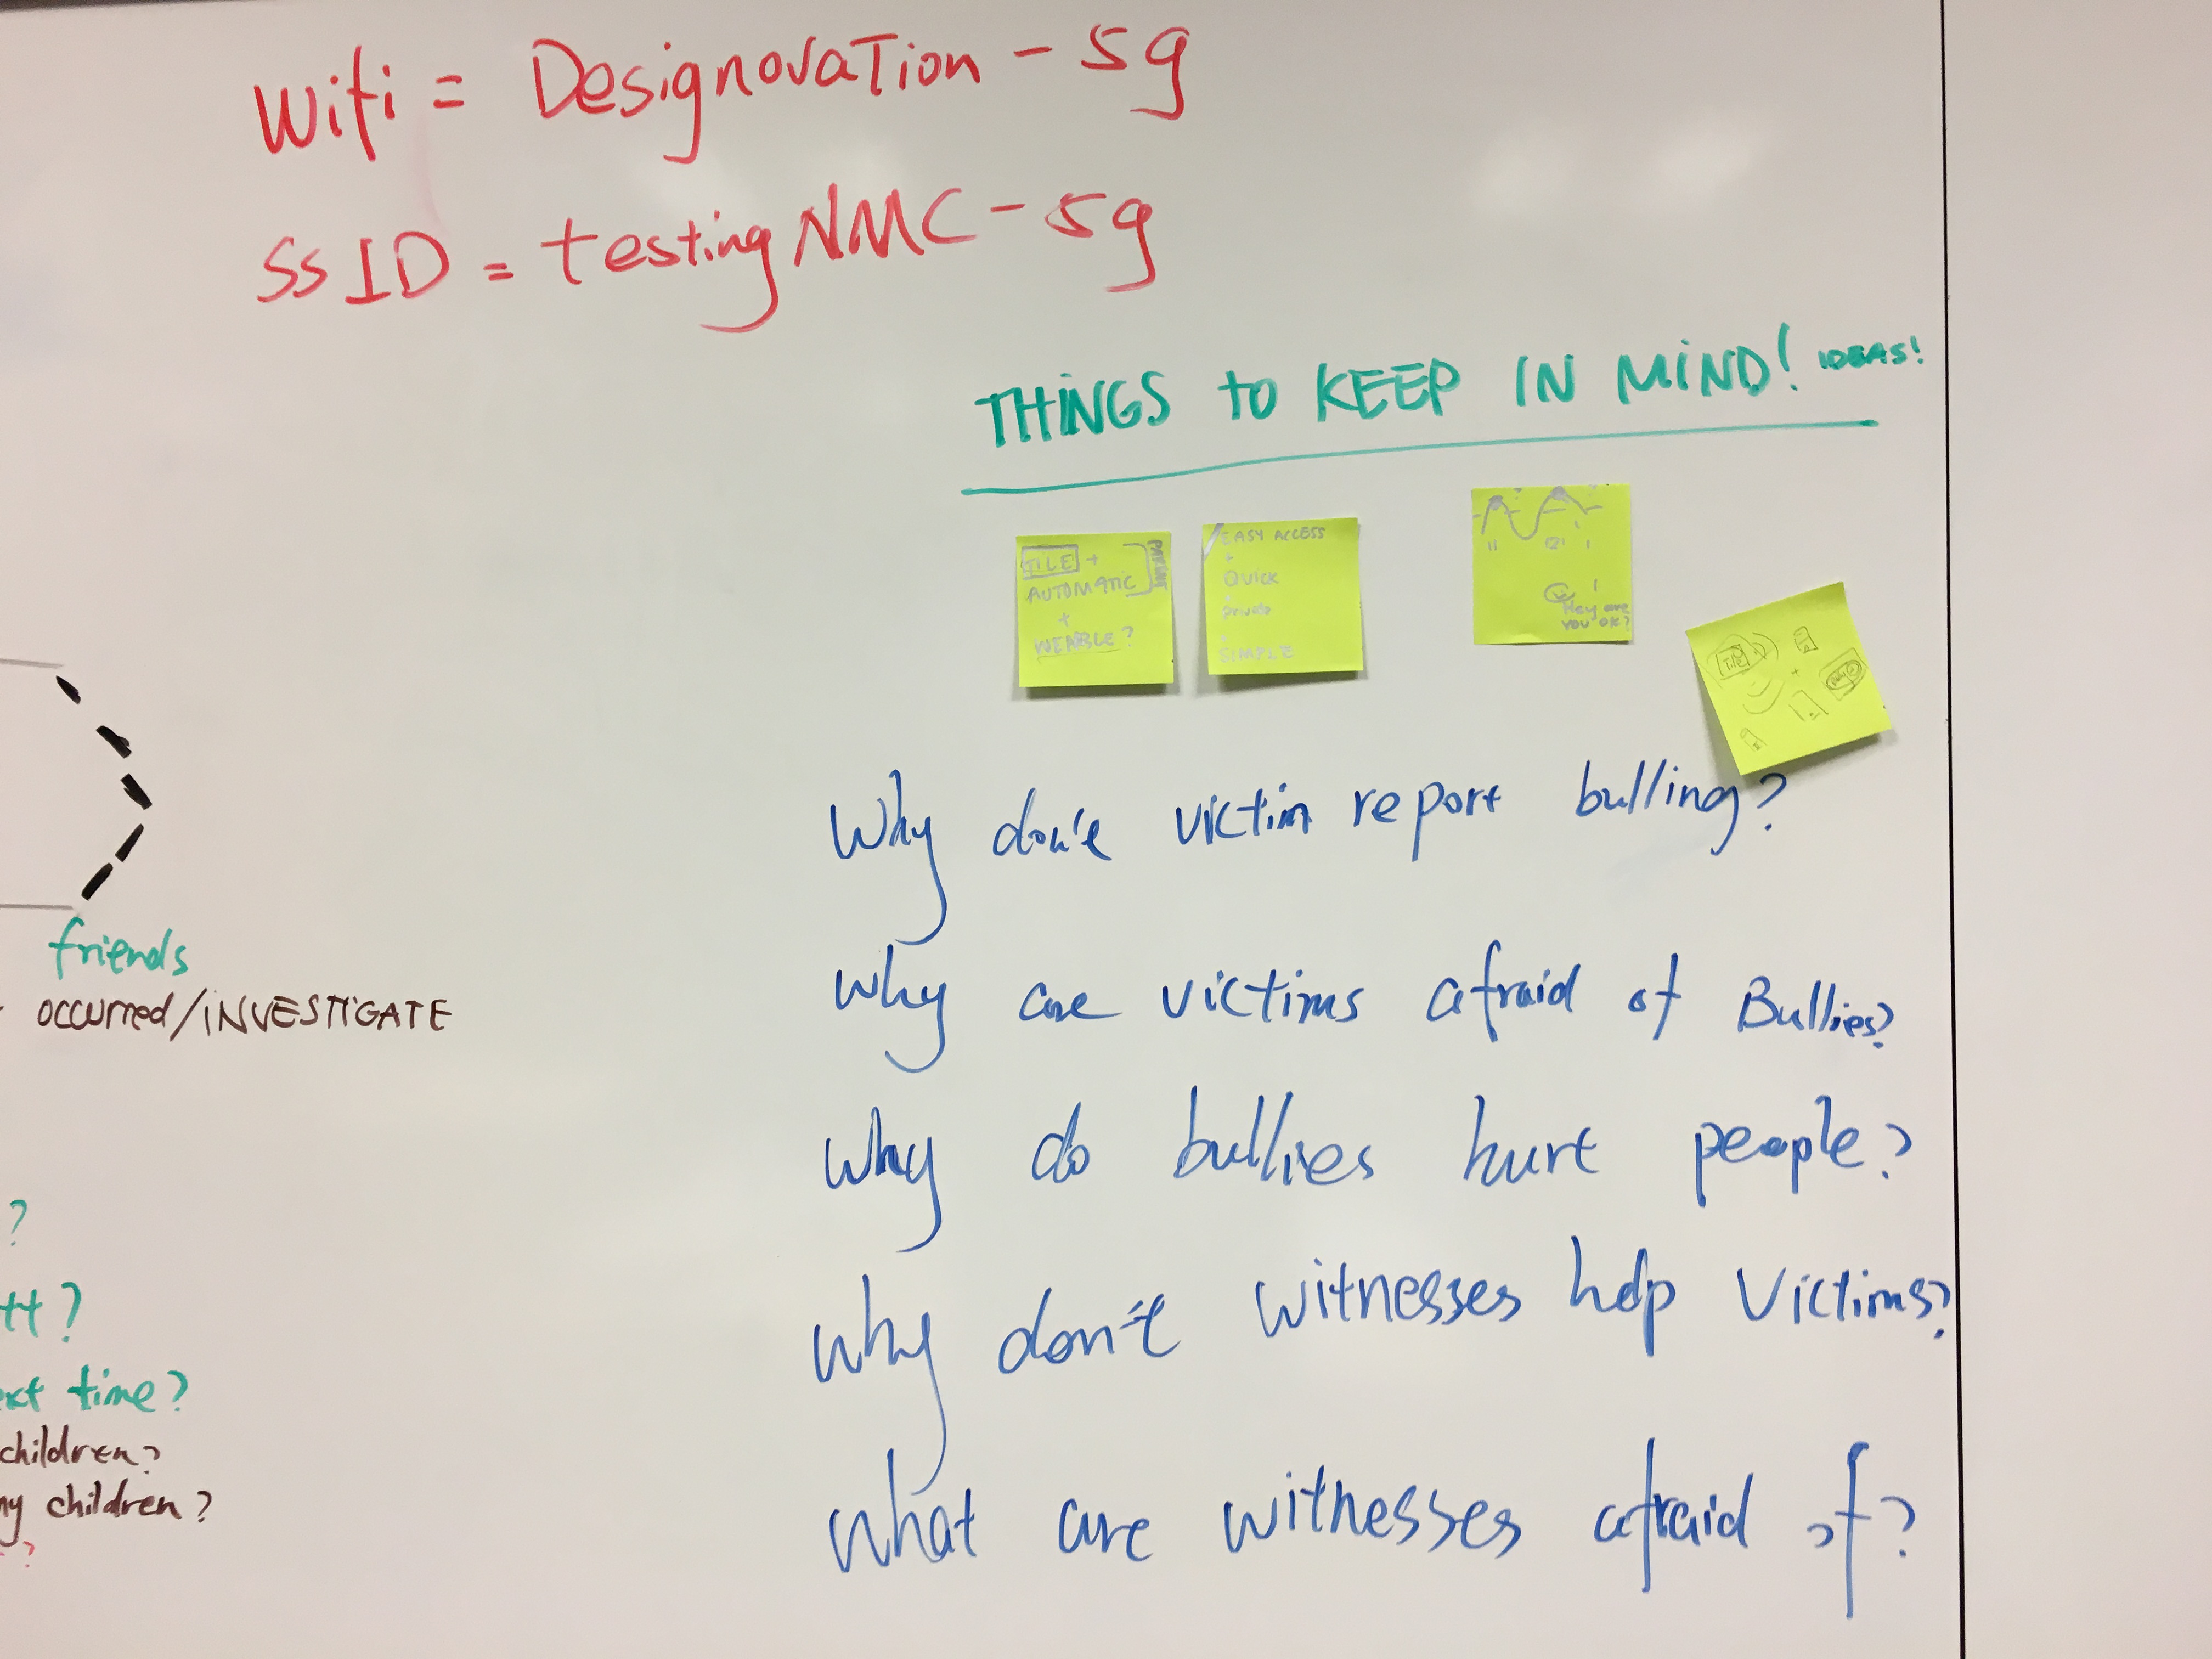 Wifi = Designovation - 5g
SSID = testing NMC - 5g
THINGS to KEEP IN MIND! IDEAS!
TILE +
AUTOMATIC
+
WEARBLE?
PARENT
EASY ACCESS
+
Quick
+
private
+
SIMPLE
11 12 1
Hey are
you ok?
TILE
+
Why don't victim report bulling?
Why are victims afraid of Bullies?
Why do bullies hurt people?
Why don't witnesses help Victims?
What are witnesses afraid of?
friends
occurred/INVESTIGATE
?
tt?
ext time?
children?
ny children?
?